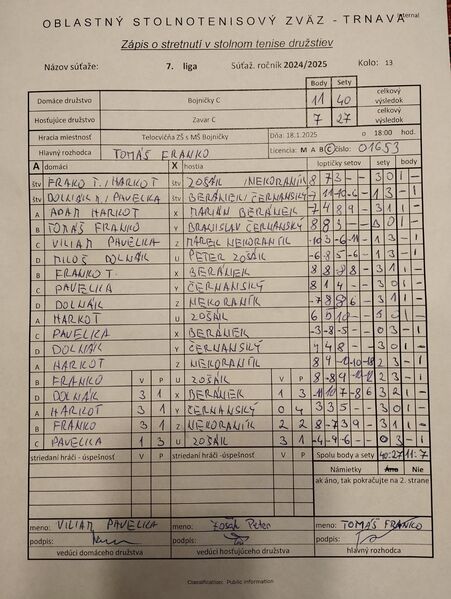 Internal
OBLASTNÝ STOLNOTENISOVÝ ZVÄZ - TRNAVA
Zápis o stretnutí v stolnom tenise družstiev
Názov súťaže: 7. liga Súťaž. ročník 2024/2025 Kolo: 13
Body Sety
Domáce družstvo Bojničky C 11 40 celkový výsledok
Hosťujúce družstvo Zavar C 7 27 celkový výsledok
Hracia miestnosť Telocvičňa ZŠ s MŠ Bojničky Dňa: 18.1.2025 o 18:00 hod.
Hlavný rozhodca TOMÁŠ FRANKO Licencia: M A B C číslo: 01653
A domáci X hostia loptičky setov sety body
štv FRAKO T. / HARKOT štv ZOŠÁK / NEKORANÍK 8 7 3 - - 3 0 1 -
štv DOLNÁK M. / PAVELICA štv BERÁNEK / ČERNANSKÝ 1 3 - 1
A ADAM HARKOT X MARIÁN BERÁNEK -7 4 8 9 3 1 1 -
B TOMÁŠ FRANKO Y BRANISLAV ČERNANSKÝ 8 8 3 - - 3 0 1 -
C VILIAM PAVELKA Z MAREK NEKORANÍK 1 3 - 1
D MILOŠ DOLNÁK U PETER ZOŠÁK 1 3 - 1
B FRANKO T. X BERÁNEK 3 1 1 -
C PAVELICA Y ČERNANSKÝ 8 1 4 - - 3 0 1 -
D DOLNÁK Z NEKORANÍK 3 1 1 -
A HARKOT U ZOŠÁK 6 5 10 - 3 0 1 -
C PAVELICA X BERÁNEK -3 -8 -5 - - 0 3 - 1
D DOLNÁK Y ČERNANSKÝ 7 4 8 - - 3 0 1 -
A HARKOT Z NEKORANÍK 2 3 - 1
B FRANKO V P U ZOŠÁK V P 2 3 - 1
D DOLNÁK 3 1 X BERÁNEK 1 3 3 2 1 -
A HARKOT 3 1 Y ČERNANSKÝ 0 4 3 3 5 - - 3 0 1 -
B FRANKO 3 1 Z NEKORANÍK 2 2 8 -7 3 9 3 1 1 -
C PAVELICA 1 3 U ZOŠÁK 3 1 -4 -9 -6 - 0 3 - 1
striedaní hráči - úspešnosť V P striedaní hráči - úspešnosť V P Spolu body a sety 40:27 11:7
Námietky Áno Nie
ak áno, tak pokračujte na 2. strane
meno: VILIAM PAVELKA meno: Zošák Peter meno: TOMÁŠ FRANKO
podpis: podpis: podpis:
vedúci domáceho družstva vedúci hosťujúceho družstva hlavný rozhodca
Classification: Public information